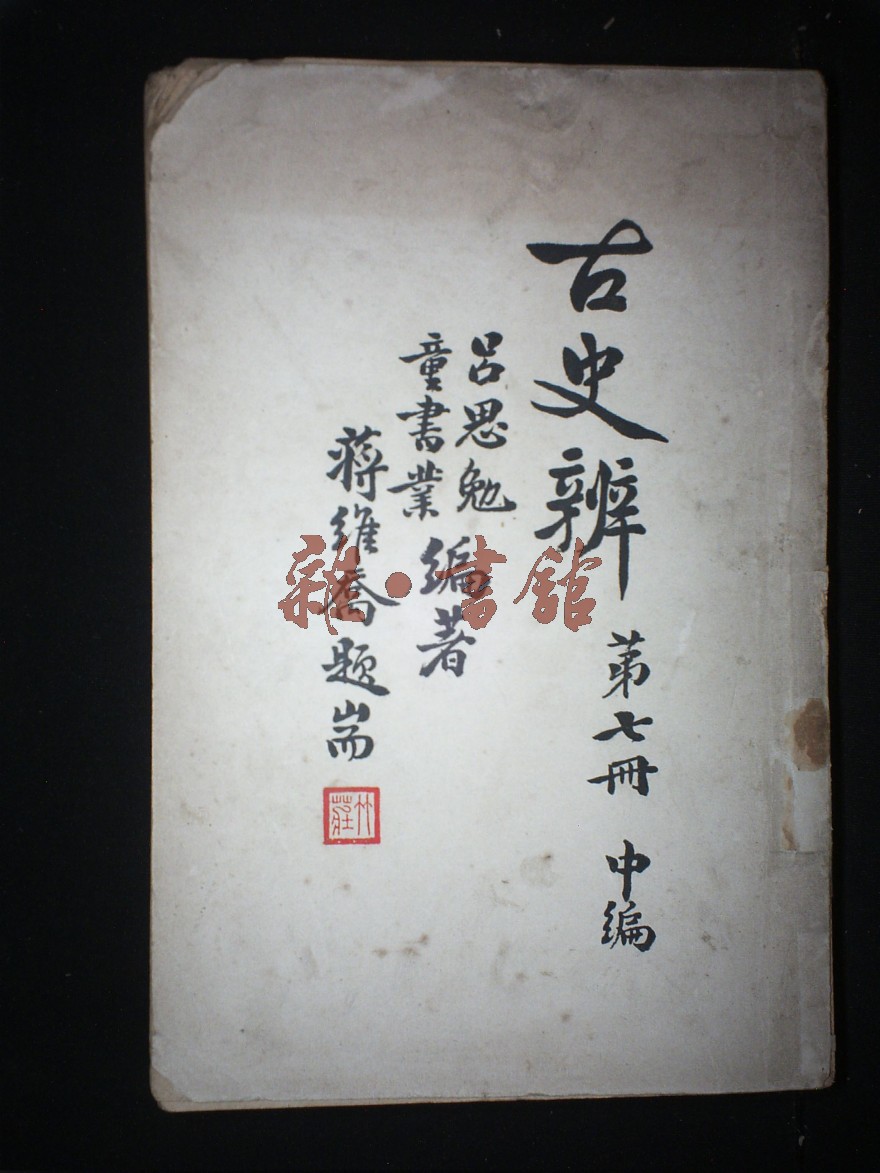 古史辨 第七冊 中編
呂思勉
童書業
編著
蔣維喬題耑
竹莊
雜·書館